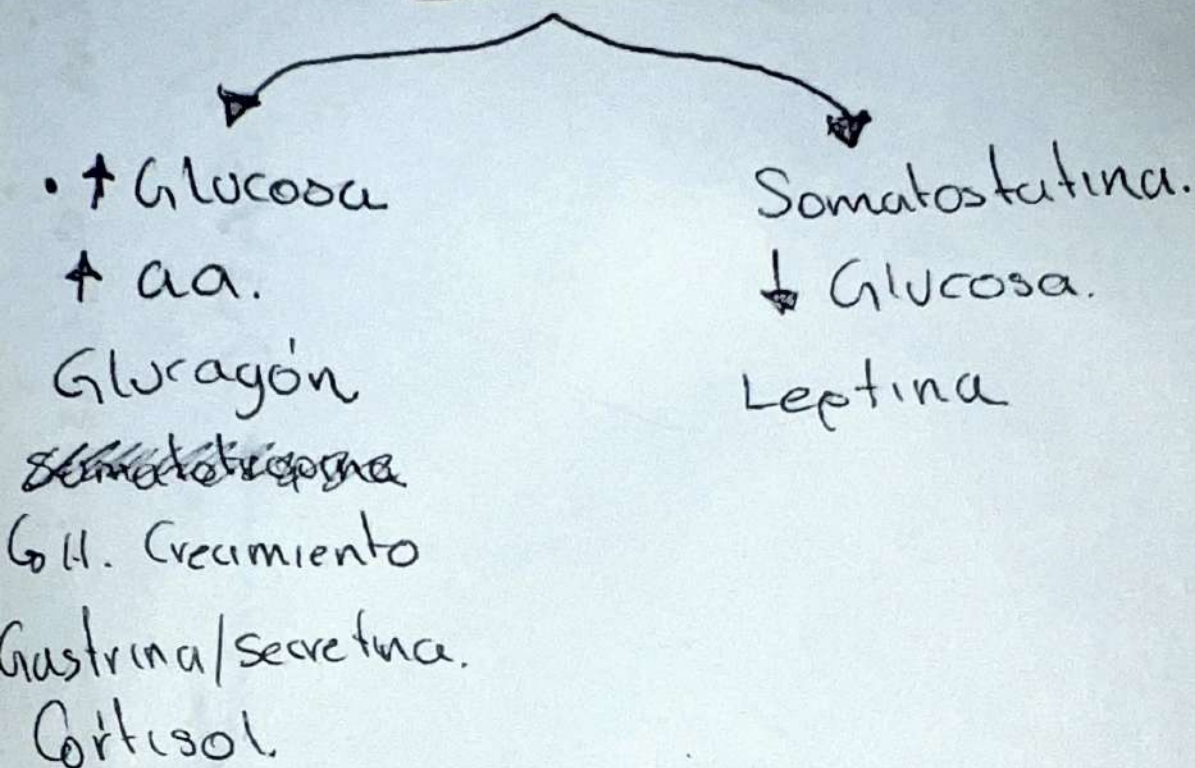 · ↑ Glucosa
↑ aa.
Glucagón
GH. Crecimiento
Gastrina/secretina.
Cortisol.
Somatostatina.
↓ Glucosa.
Leptina